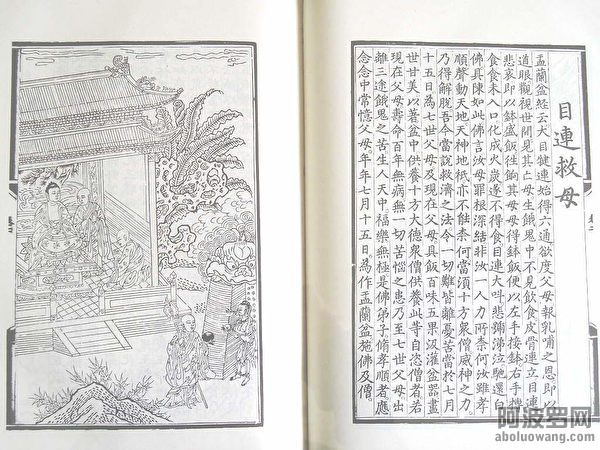 目連救母
盂蘭盆經云大目犍連始得六通欲度父母報乳哺之恩即以
道眼觀視世間見其亡母生餓鬼中不見飲食皮骨連立目連
悲哀即以鉢盛飯往餉其母母得鉢飯便以左手按鉢右手摶
食食未入口化成火炭遂不得食目連大叫悲號涕泣馳還白
佛具陳如此佛言汝母罪根深結非汝一人力所柰何汝雖孝
順聲動天地天神地祇亦不能柰何當須十方衆僧威神之力
乃得解脫吾今當說救濟之法令一切難皆離憂苦當於七月
十五日為七世父母及現在父母具飯百味五果汲灌盆器盡
世甘美以著盆中供養十方大德衆僧供養此等自恣僧者若
現在父母壽命百年無病無一切苦惱之患乃至七世父母出
離三途餓鬼之苦生人天中福樂無極是佛弟子脩孝順者應
念念中常憶父母年年七月十五日為作盂蘭盆施佛及僧。
阿波罗网
aboluowang.com